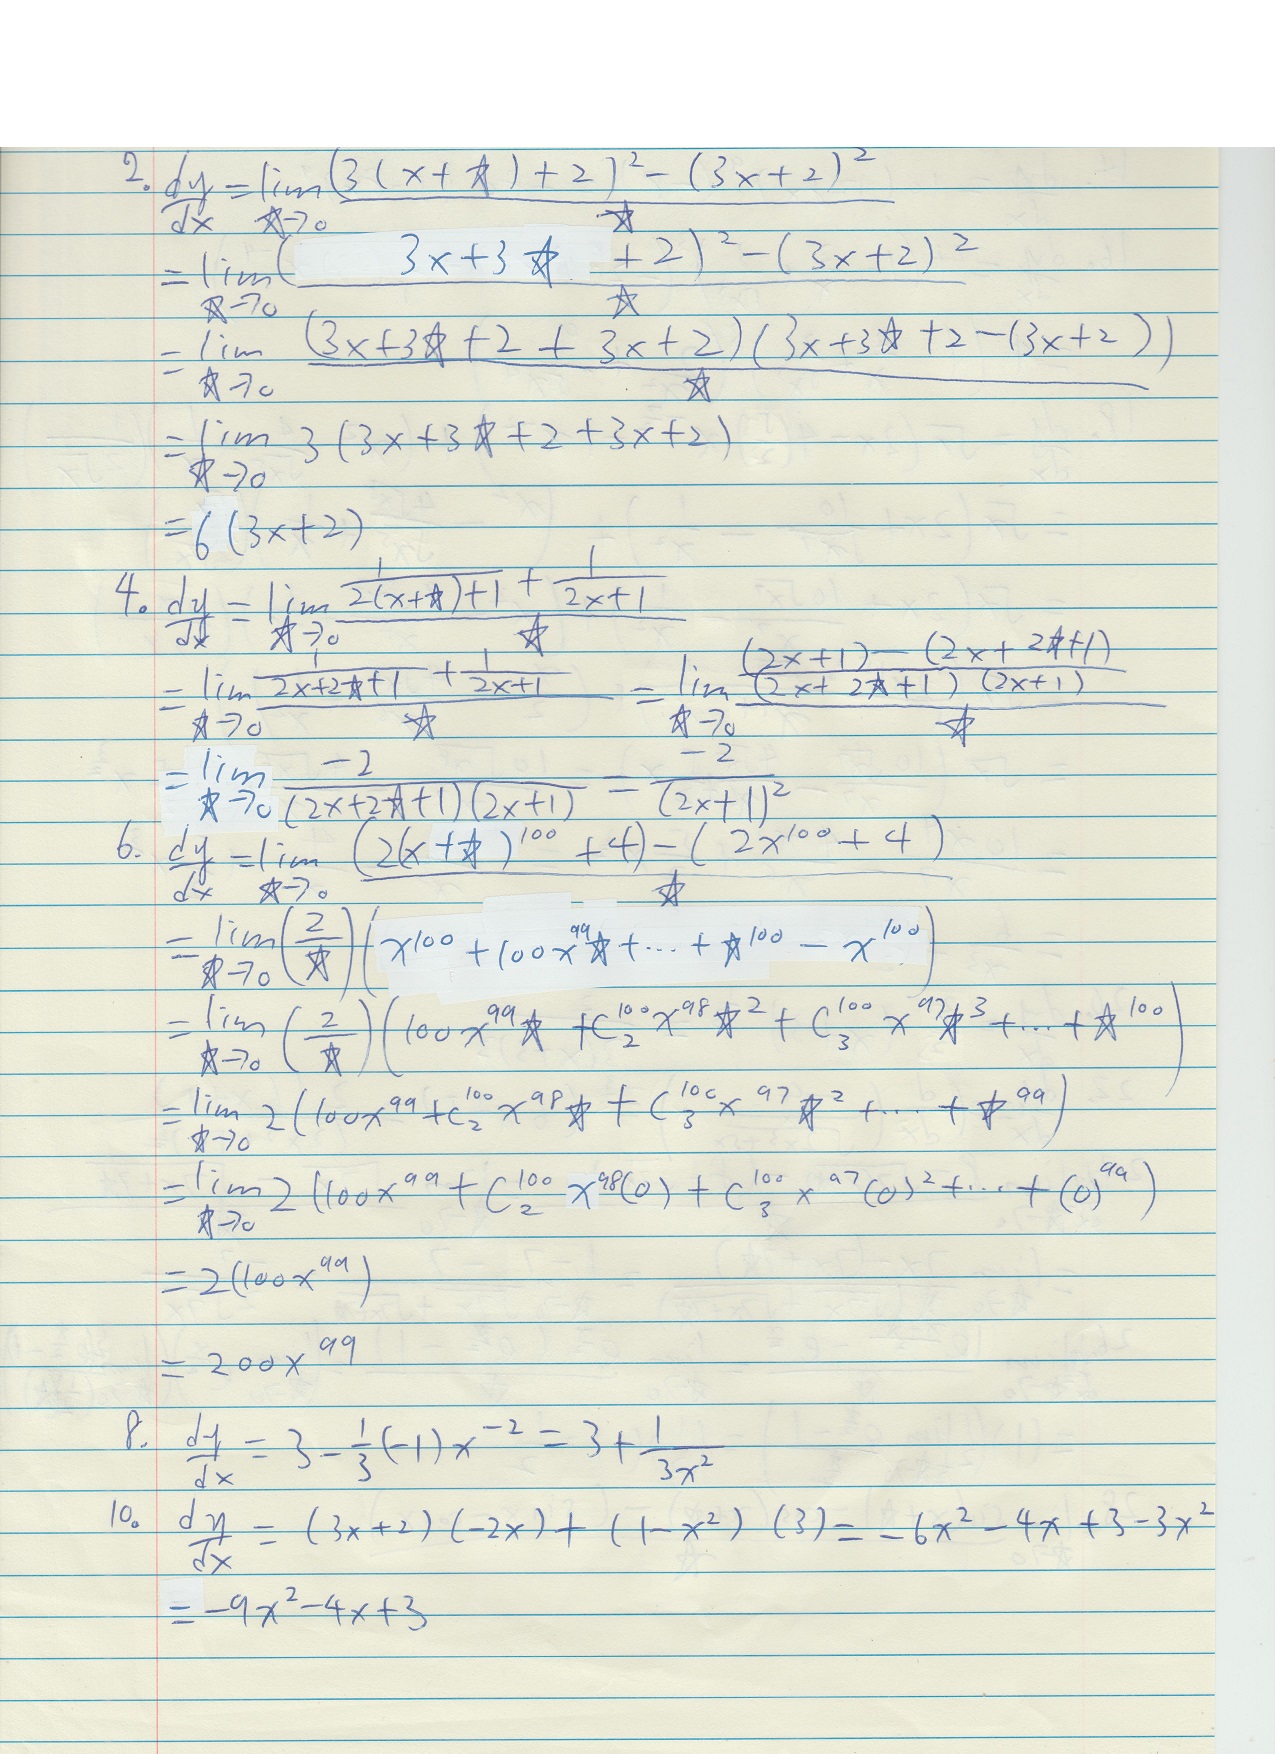 2. dy/dx = lim ☆→0 ((3(x+☆)+2)² − (3x+2)²)/☆
= lim ☆→0 (3x+3☆+2)² − (3x+2)²/☆
= lim ☆→0 (3x+3☆+2+3x+2)(3x+3☆+2−(3x+2))/☆
= lim ☆→0 3(3x+3☆+2+3x+2)
= 6(3x+2)
4. dy/dx = lim ☆→0 (1/(2(x+☆)+1) + 1/(2x+1))/☆
= lim ☆→0 (1/(2x+2☆+1) + 1/(2x+1))/☆ = lim ☆→0 ((2x+1)−(2x+2☆+1)/(2x+2☆+1)(2x+1))/☆
= lim ☆→0 −2/(2x+2☆+1)(2x+1) = −2/(2x+1)²
6. dy/dx = lim ☆→0 ((2(x+☆)¹⁰⁰+4)−(2x¹⁰⁰+4))/☆
= lim ☆→0 (2/☆)(x¹⁰⁰+100x⁹⁹☆+...+☆¹⁰⁰−x¹⁰⁰)
= lim ☆→0 (2/☆)(100x⁹⁹☆+C₂¹⁰⁰x⁹⁸☆²+C₃¹⁰⁰x⁹⁷☆³+...+☆¹⁰⁰)
= lim ☆→0 2(100x⁹⁹+C₂¹⁰⁰x⁹⁸☆+C₃¹⁰⁰x⁹⁷☆²+...+☆⁹⁹)
= lim ☆→0 2(100x⁹⁹+C₂¹⁰⁰x⁹⁸(0)+C₃¹⁰⁰x⁹⁷(0)²+...+(0)⁹⁹)
= 2(100x⁹⁹)
= 200x⁹⁹
8. dy/dx = 3−1/3(−1)x⁻² = 3+1/3x²
10. dy/dx = (3x+2)(−2x)+(1−x²)(3) = −6x²−4x+3−3x²
= −9x²−4x+3